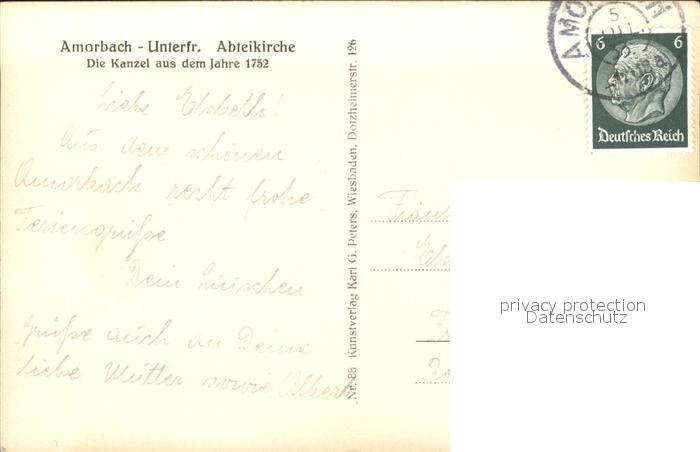 Amorbach - Unterfr. Abteikirche
Die Kanzel aus dem Jahre 1752
Liebe Elsbeth!
Aus dem schönen
Amorbach recht frohe
Feriengrüße
Dein
Grüße auch an Deine
liebe Mutter sowie Albert
Nr. 88 Kunstverlag Karl G. Peters, Wiesbaden, Dotzheimerstr. 126
AMO
5
6 6
Deutsches Reich
Fräul
Els
privacy protection
Datenschutz